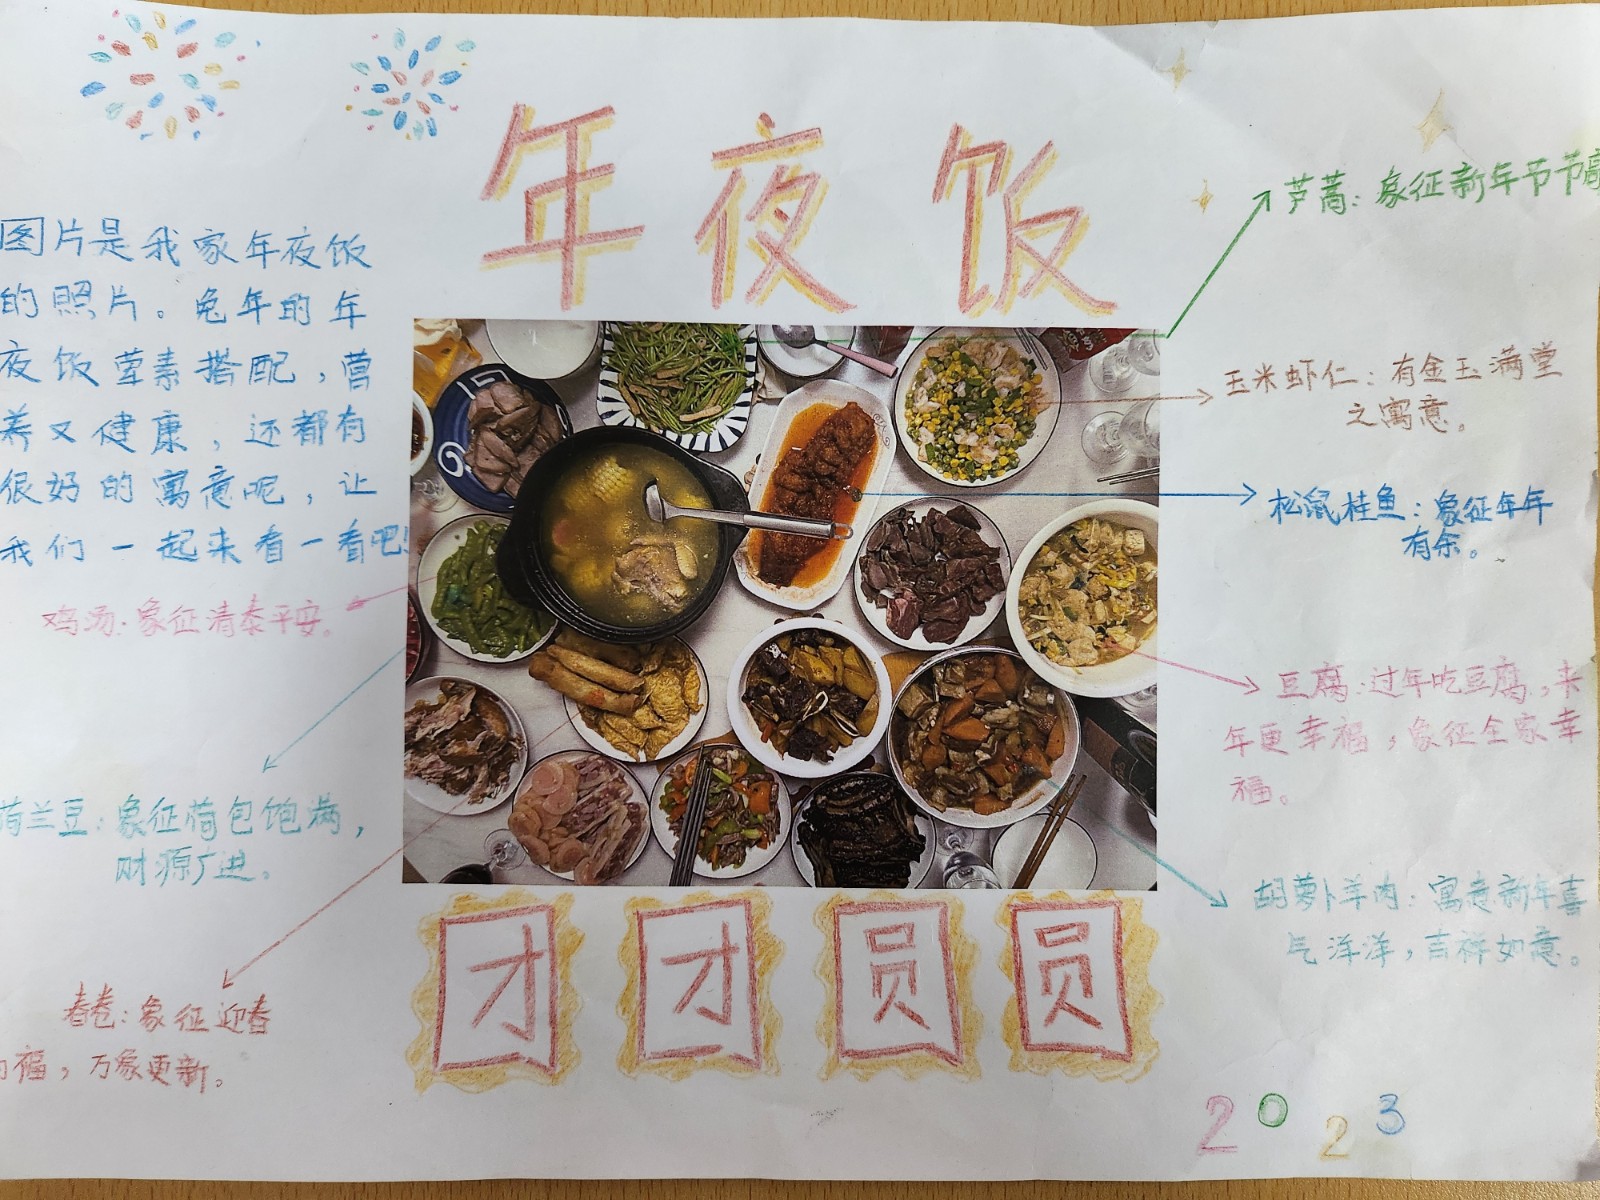 年夜饭
图片是我家年夜饭
的照片。兔年的年
夜饭荤素搭配，营
养又健康，还都有
很好的寓意呢，让
我们一起来看一看吧！
鸡汤：象征清泰平安。
荷兰豆：象征荷包饱满，
财源广进。
春卷：象征迎春
福，万象更新。
芦蒿：象征新年节节高
玉米虾仁：有金玉满堂
之寓意。
松鼠桂鱼：象征年年
有余。
豆腐：过年吃豆腐，来
年更幸福，象征全家幸
福。
胡萝卜羊肉：寓意新年喜
气洋洋，吉祥如意。
团团圆圆
2023